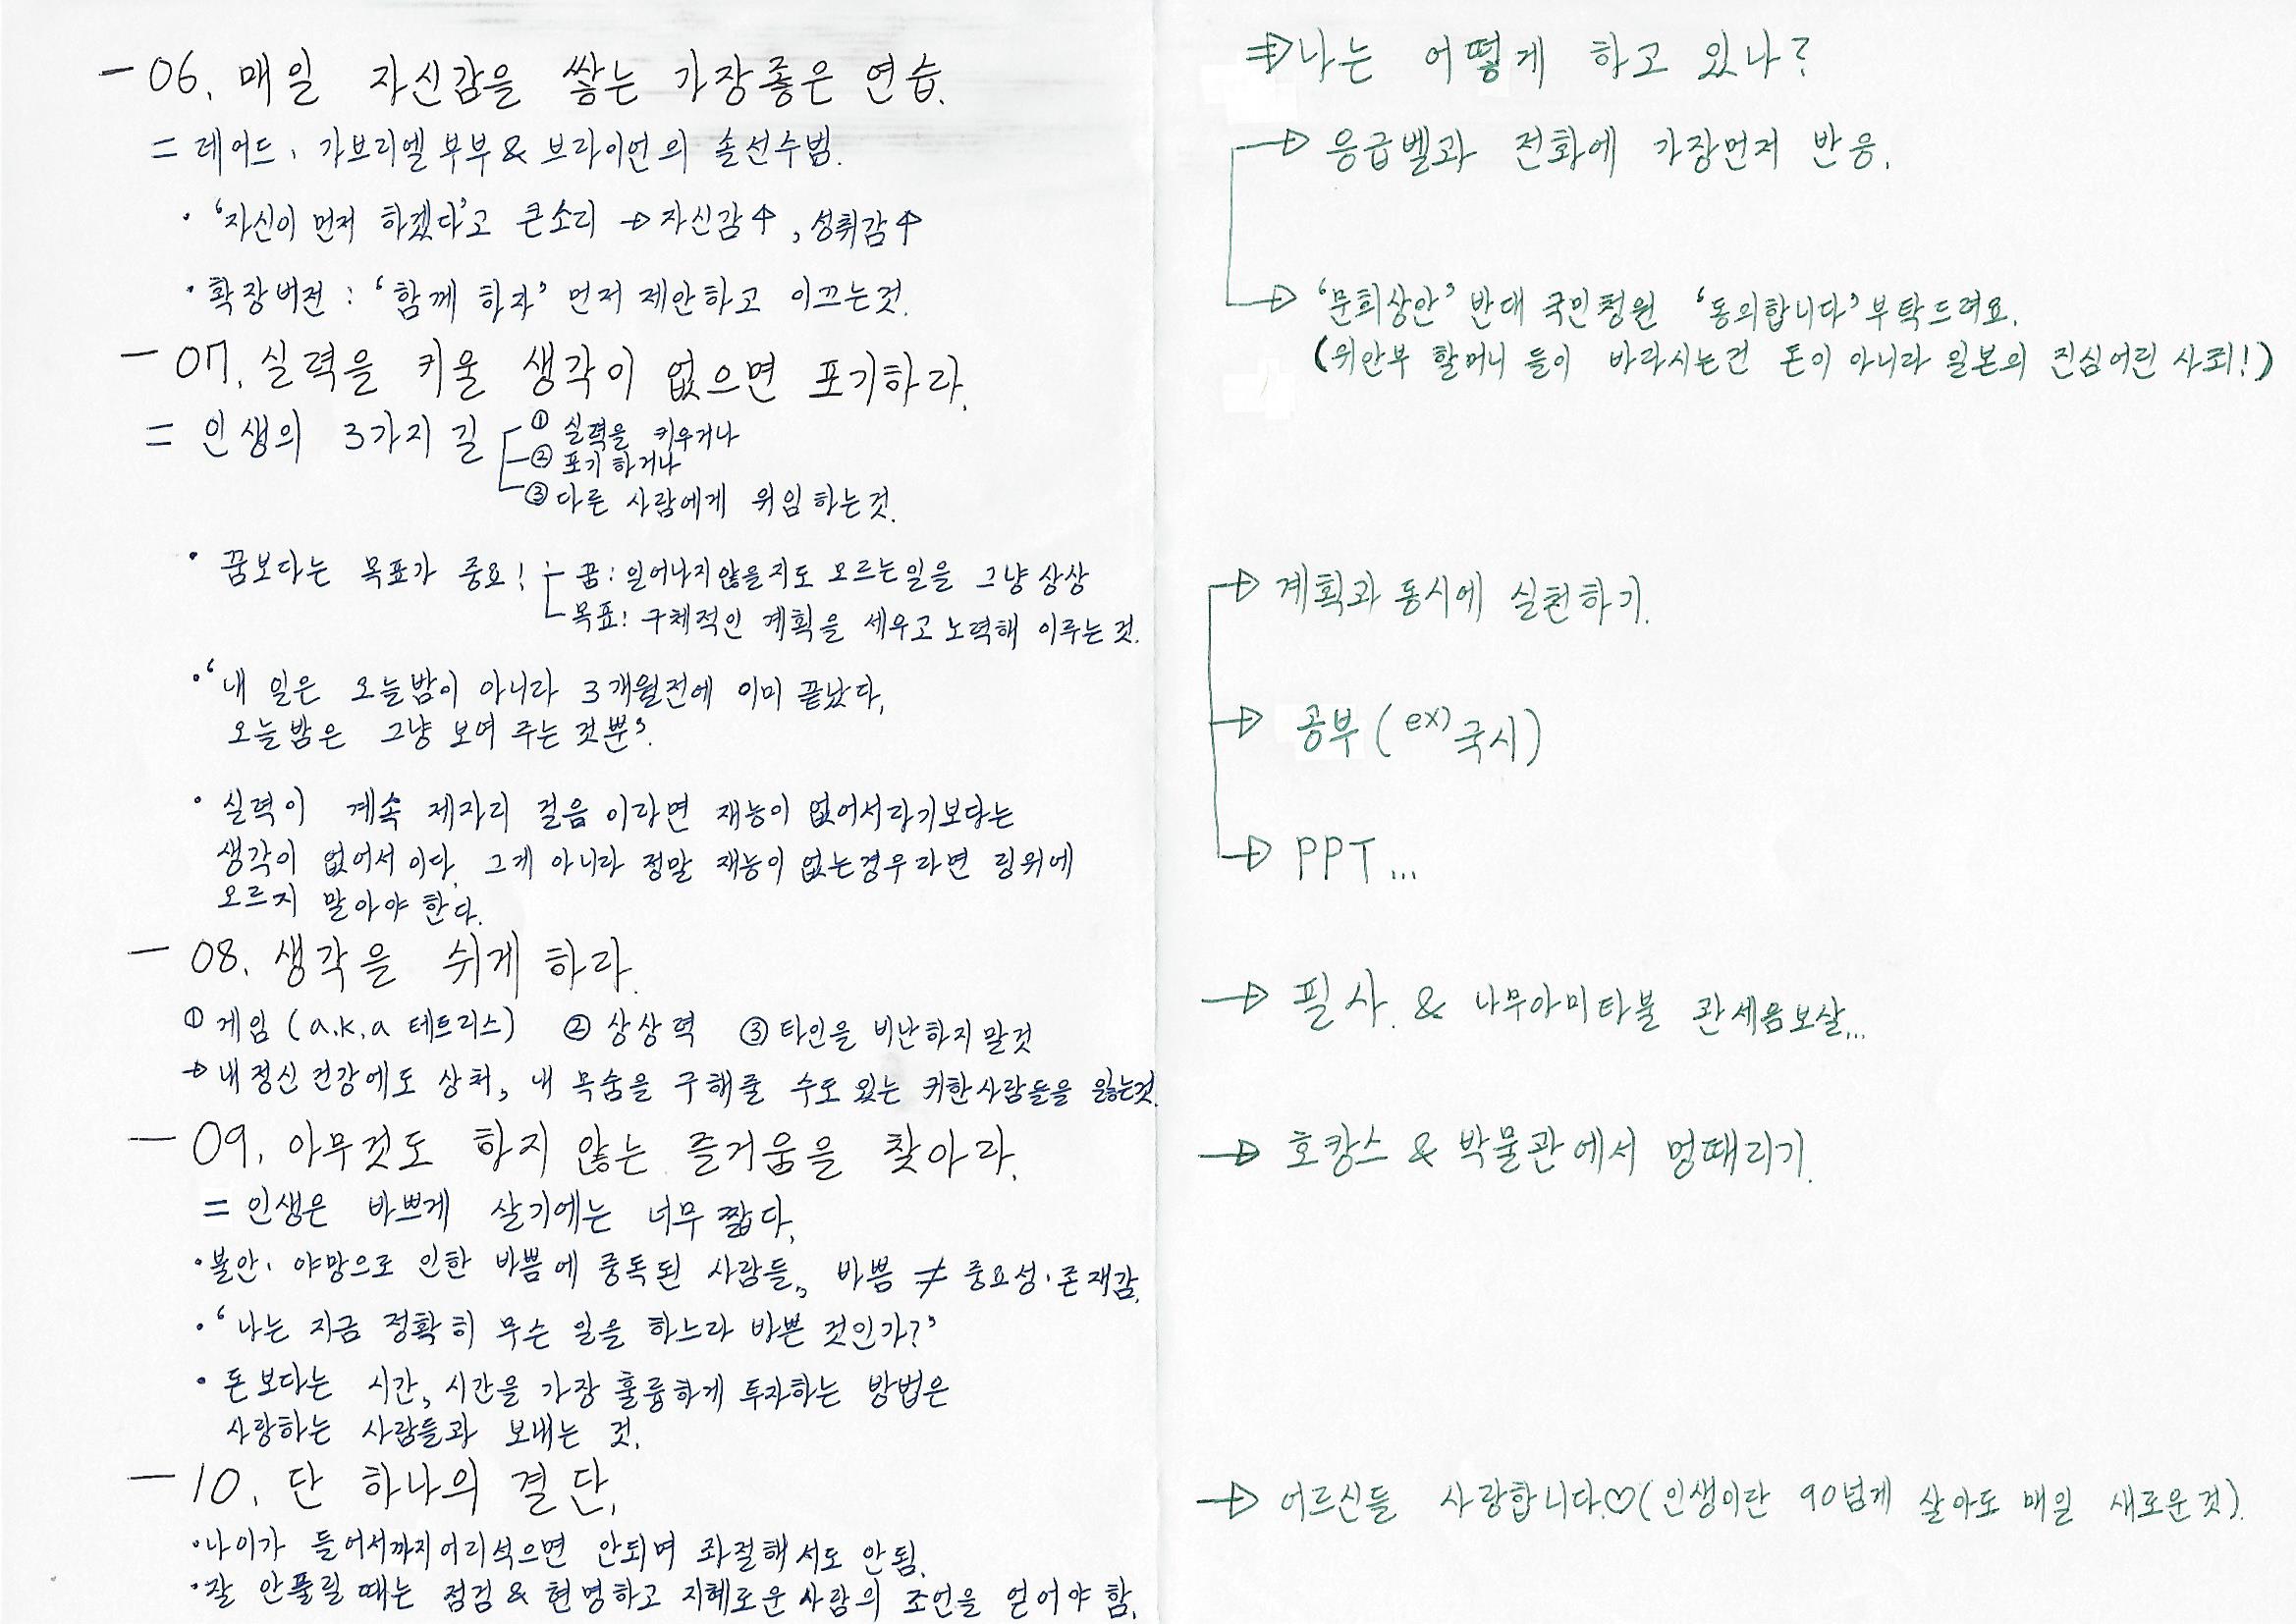 - 06. 매일 자신감을 쌓는 가장 좋은 연습.
= 레어드, 가브리엘 부부 & 브라이언의 솔선수범.
• '자신이 먼저 하겠다'고 큰소리 → 자신감↑, 성취감↑
• 확장버전 : '함께 하자' 먼저 제안하고 이끄는것.
- 07. 실력을 키울 생각이 없으면 포기하라.
= 인생의 3가지 길
① 실력을 키우거나
② 포기하거나
③ 다른 사람에게 위임하는것.
• 꿈보다는 목표가 중요!
꿈 : 일어나지않을지도 모르는일을 그냥 상상
목표 : 구체적인 계획을 세우고 노력해 이루는 것.
• '내 일은 오늘밤이 아니라 3개월전에 이미 끝났다,
오늘밤은 그냥 보여 주는 것뿐'.
• 실력이 계속 제자리 걸음 이라면 재능이 없어서라기보다는
생각이 없어서 이다. 그게 아니라 정말 재능이 없는경우라면 링위에
오르지 말아야 한다.
- 08. 생각을 쉬게 하라.
① 게임 (a.k.a 테트리스) ② 상상력 ③ 타인을 비난하지 말것
→ 내 정신건강에도 상처, 내 목숨을 구해줄 수도 있는 귀한사람들을 잃는것.
- 09. 아무것도 하지 않는 즐거움을 찾아라.
= 인생은 바쁘게 살기에는 너무 짧다.
• 불안, 야망으로 인한 바쁨에 중독된 사람들, 바쁨 ≠ 중요성·존재감.
• '나는 지금 정확히 무슨 일을 하느라 바쁜 것인가?'
• 돈보다는 시간, 시간을 가장 훌륭하게 투자하는 방법은
사랑하는 사람들과 보내는 것.
- 10. 단 하나의 결단.
• 나이가 들어서까지 어리석으면 안되며 좌절해서도 안됨.
• 잘 안풀릴 때는 점검 & 현명하고 지혜로운 사람의 조언을 얻어야 함.
⇒ 나는 어떻게 하고 있나?
→ 응급벨과 전화에 가장먼저 반응.
→ '문희상안' 반대 국민청원 '동의합니다' 부탁드려요.
(위안부 할머니 들이 바라시는건 돈이 아니라 일본의 진심어린 사죄!)
→ 계획과 동시에 실천하기.
→ 공부 (ex) 국시)
→ PPT...
→ 필사. & 나무아미타불 관세음보살...
→ 호캉스 & 박물관에서 멍때리기.
→ 어르신들 사랑합니다.♡(인생이란 90넘게 살아도 매일 새로운것).